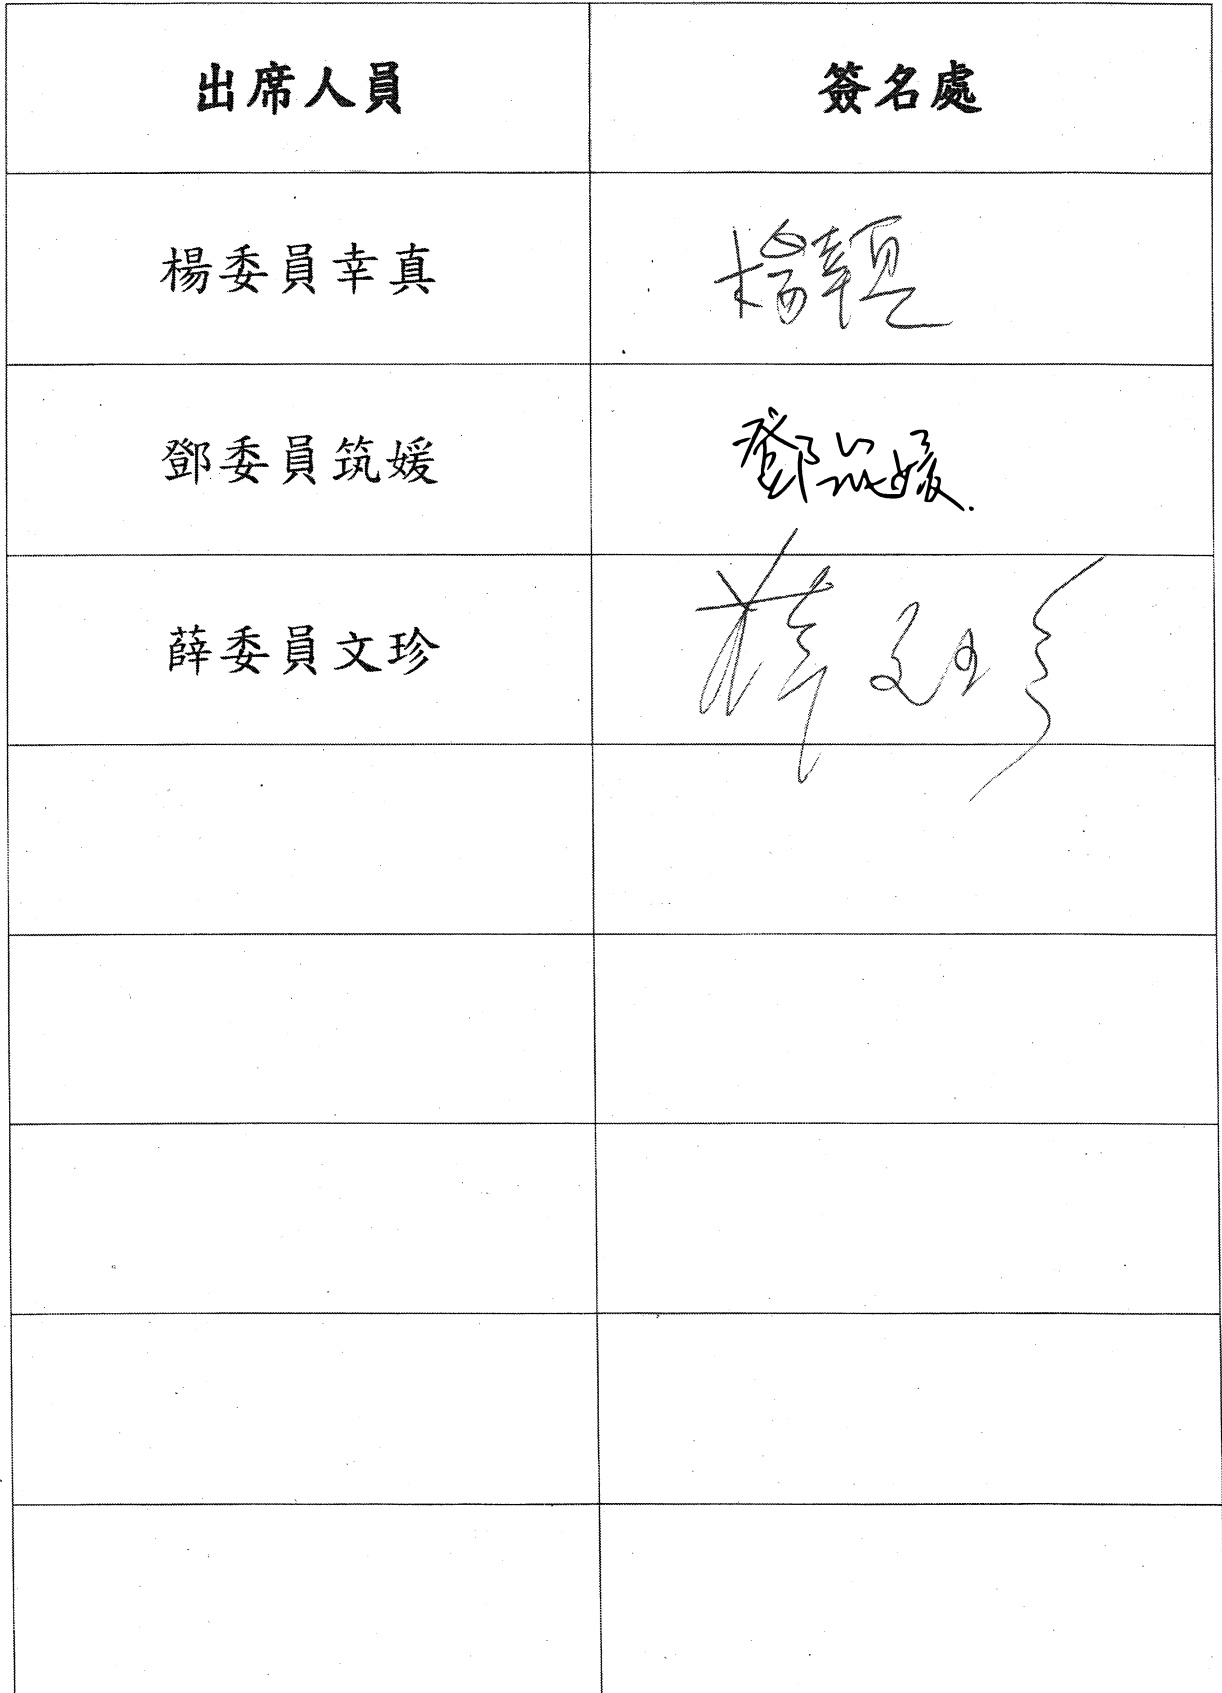 出席人員 簽名處
楊委員幸真 楊幸真
鄧委員筑媛 鄧筑媛
薛委員文珍 薛文珍